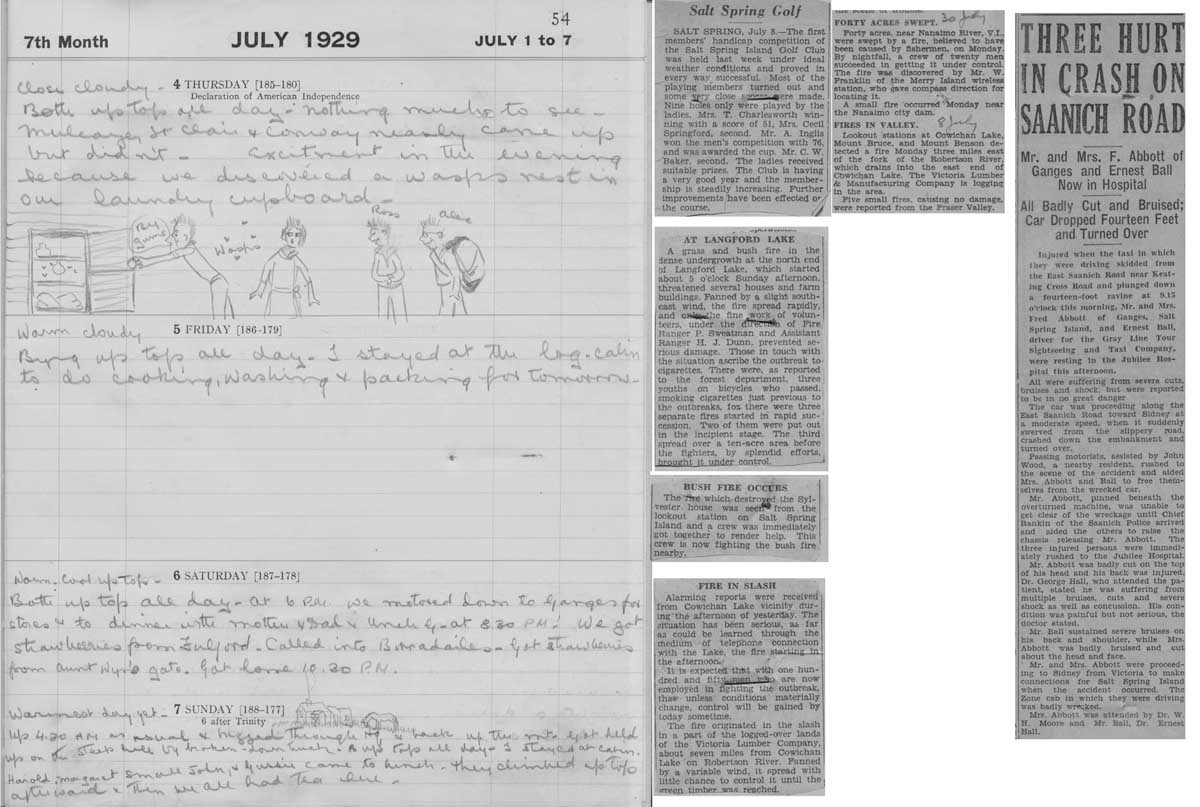 54
7th Month
JULY 1929
JULY 1 to 7
Close cloudy -
4 THURSDAY [185-180]
Declaration of American Independence
Both up top all day - nothing much to see -
St Clair & Conway nearly came up
but didn't - Excitment in the evening
because we discovered a wasps nest in
our laundry cupboard -
By
gum
Wasps
Ross
Alex
Warm cloudy
5 FRIDAY [186-179]
up top all day - I stayed at the log-cabin
to do cooking, washing & packing for tomorrow -
Warm. Cool up top -
6 SATURDAY [187-178]
Both up top all day - at 6 P.M. we motored down to Ganges for
stores & to dinner with mother & Dad & at 8.30 P.M. We got
strawberries from Fulford - Called into Borradailes - Got strawberries
from Aunt gate. Got home 10.30 P.M.
Warmest day yet -
7 SUNDAY [188-177]
6 after Trinity
up 4.30 AM as usual & through up the mts Got held
up on the steep hill by broken-down truck. up top all day - I stayed at cabin.
Harold, Margaret small John, & came to lunch - They climbed up top
afterward & then we all had tea here -
Salt Spring Golf
SALT SPRING, July 8.—The first
members' handicap competition of
the Salt Spring Island Golf Club
was held last week under ideal
weather conditions and proved in
every way successful. Most of the
playing members turned out and
some very close scores were made.
Nine holes only were played by the
ladies. Mrs. T. Charlesworth win-
ning with a score of 51, Mrs. Cecil
Springford, second. Mr. A. Inglis
won the men's competition with 76,
and was awarded the cup. Mr. C. W.
Baker, second. The ladies received
suitable prizes. The Club is having
a very good year and the member-
ship is steadily increasing. Further
improvements have been effected or
the course.
AT LANGFORD LAKE
A grass and bush fire in the
dense undergrowth at the north end
of Langford Lake, which started
about 5 o'clock Sunday afternoon,
threatened several houses and farm
buildings. Fanned by a slight south-
east wind, the fire spread rapidly,
and only the fine work of volun-
teers, under the direction of Fire
Ranger P. Sweatman and Assistant
Ranger H. J. Dunn, prevented se-
rious damage. Those in touch with
the situation ascribe the outbreak to
cigarettes. There were, as reported
to the forest department, three
youths on bicycles who passed,
smoking cigarettes just previous to
the outbreaks, fox there were three
separate fires started in rapid suc-
cession. Two of them were put out
in the incipient stage. The third
spread over a ten-acre area before
the fighters, by splendid efforts,
brought it under control.
BUSH FIRE OCCURS
The fire which destroyed the Syl-
vester house was seen from the
lookout station on Salt Spring
Island and a crew was immediately
got together to render help. This
crew is now fighting the bush fire
nearby.
FIRE IN SLASH
Alarming reports were received
from Cowichan Lake vicinity dur-
ing the afternoon of yesterday. The
situation has been serious, as far
as could be learned through the
medium of telephone connection
with the Lake, the fire starting in
the afternoon.
It is expected that with one hun-
dred and fifty men who are now
employed in fighting the outbreak,
that unless conditions materially
change, control will be gained by
today sometime.
The fire originated in the slash
in a part of the logged-over lands
of the Victoria Lumber Company,
about seven miles from Cowichan
Lake on Robertson River. Fanned
by a variable wind, it spread with
little chance to control it until the
green timber was reached.
the scene of trouble.
FORTY ACRES SWEPT. 30 July
Forty acres, near Nanaimo River, V.I.,
were swept by a fire, believed to have
been caused by fishermen, on Monday.
By nightfall, a crew of twenty men
succeeded in getting it under control.
The fire was discovered by Mr. W.
Franklin of the Merry Island wireless
station, who gave compass direction for
locating it.
A small fire occurred Monday near
the Nanaimo city dam.
FIRES IN VALLEY. 8 July
Lookout stations at Cowichan Lake,
Mount Bruce, and Mount Benson de-
tected a fire Monday three miles east
of the fork of the Robertson River,
which drains into the east end of
Cowichan Lake. The Victoria Lumber
& Manufacturing Company is logging
in the area.
Five small fires, causing no damage,
were reported from the Fraser Valley.
THREE HURT
IN CRASH ON
SAANICH ROAD
Mr. and Mrs. F. Abbott of
Ganges and Ernest Ball
Now in Hospital
All Badly Cut and Bruised;
Car Dropped Fourteen Feet
and Turned Over
Injured when the taxi in which
they were driving skidded from
the East Saanich Road near Keat-
ing Cross Road and plunged down
a fourteen-foot ravine at 9.15
o'clock this morning, Mr. and Mrs.
Fred Abbott of Ganges, Salt
Spring Island, and Ernest Ball,
driver for the Gray Line Tour
Sightseeing and Taxi Company,
were resting in the Jubilee Hos-
pital this afternoon.
All were suffering from severe cuts,
bruises and shock, but were reported
to be in no great danger
The car was proceeding along the
East Saanich Road toward Sidney at
a moderate speed, when it suddenly
swerved from the slippery road,
crashed down the embankment and
turned over.
Passing motorists, assisted by John
Wood, a nearby resident, rushed to
the scene of the accident and aided
Mrs. Abbott and Ball to free them-
selves from the wrecked car.
Mr. Abbott, pinned beneath the
overturned machine, was unable to
get clear of the wreckage until Chief
Rankin of the Saanich Police arrived
and aided the others to raise the
chassis releasing Mr. Abbott. The
three injured persons were immedi-
ately rushed to the Jubilee Hospital.
Mr. Abbott was badly cut on the top
of his head and his back was injured.
Dr. George Hall, who attended the pa-
tient, stated he was suffering from
multiple bruises, cuts and severe
shock as well as concussion. His con-
dition was painful but not serious, the
doctor stated.
Mr. Ball sustained severe bruises on
his back and shoulder, while Mrs.
Abbott was badly bruised and cut
about the head and face.
Mr. and Mrs. Abbott were proceed-
ing to Sidney from Victoria to make
connections for Salt Spring Island
when the accident occurred. The
Zone cab in which they were driving
was badly wrecked.
Mrs. Abbott was attended by Dr. W.
H. Moore and Mr. Ball, Dr. Ernest
Hall.